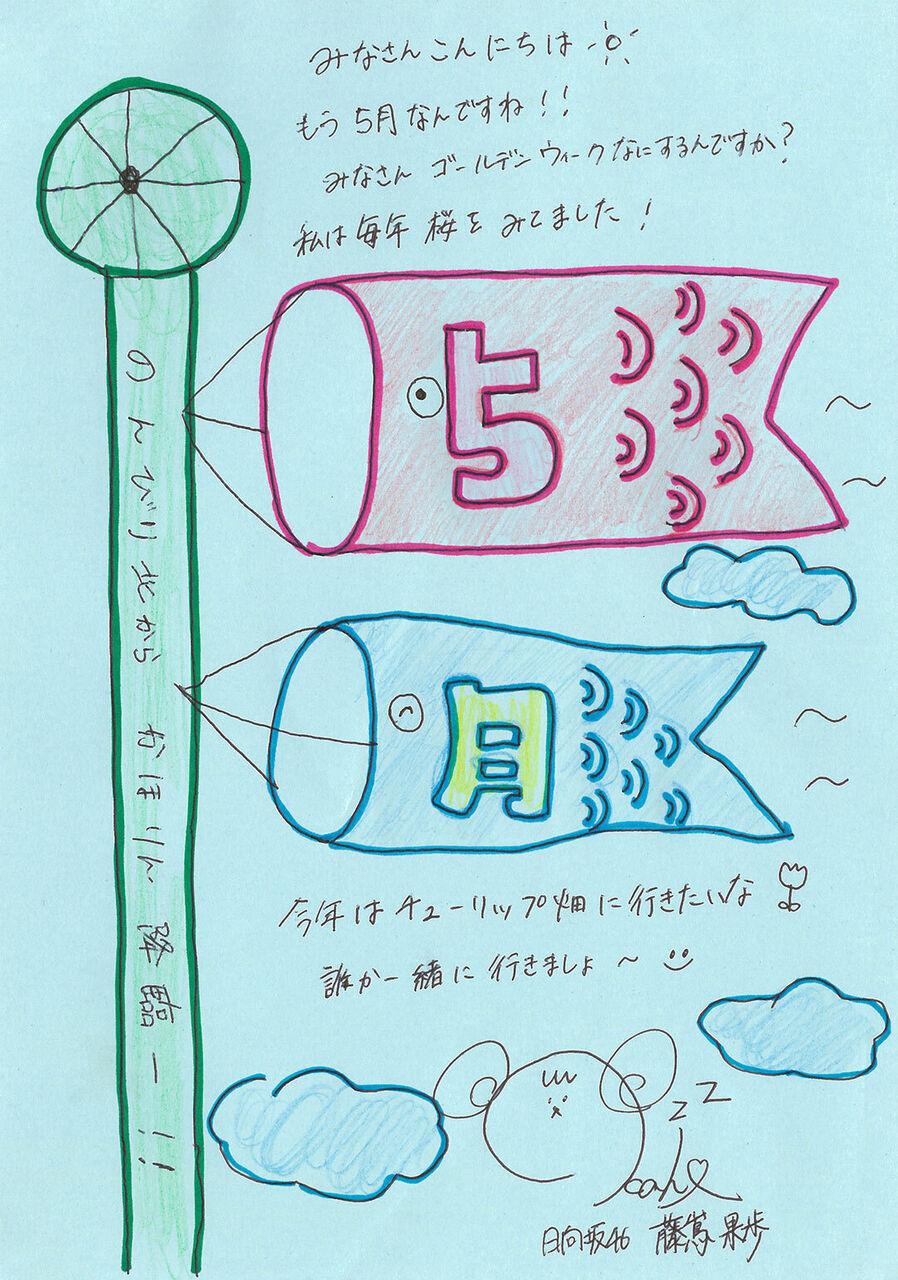 みなさんこんにちは
もう5月なんですね!!
みなさん ゴールデンウィークなにするんですか?
私は毎年 桜を みてました!
5
月
のんびり北から かほりん 降臨ー!!
今年は チューリップ畑に行きたいな
誰か一緒に 行きましょ〜
zz
日向坂46 藤嶌果歩